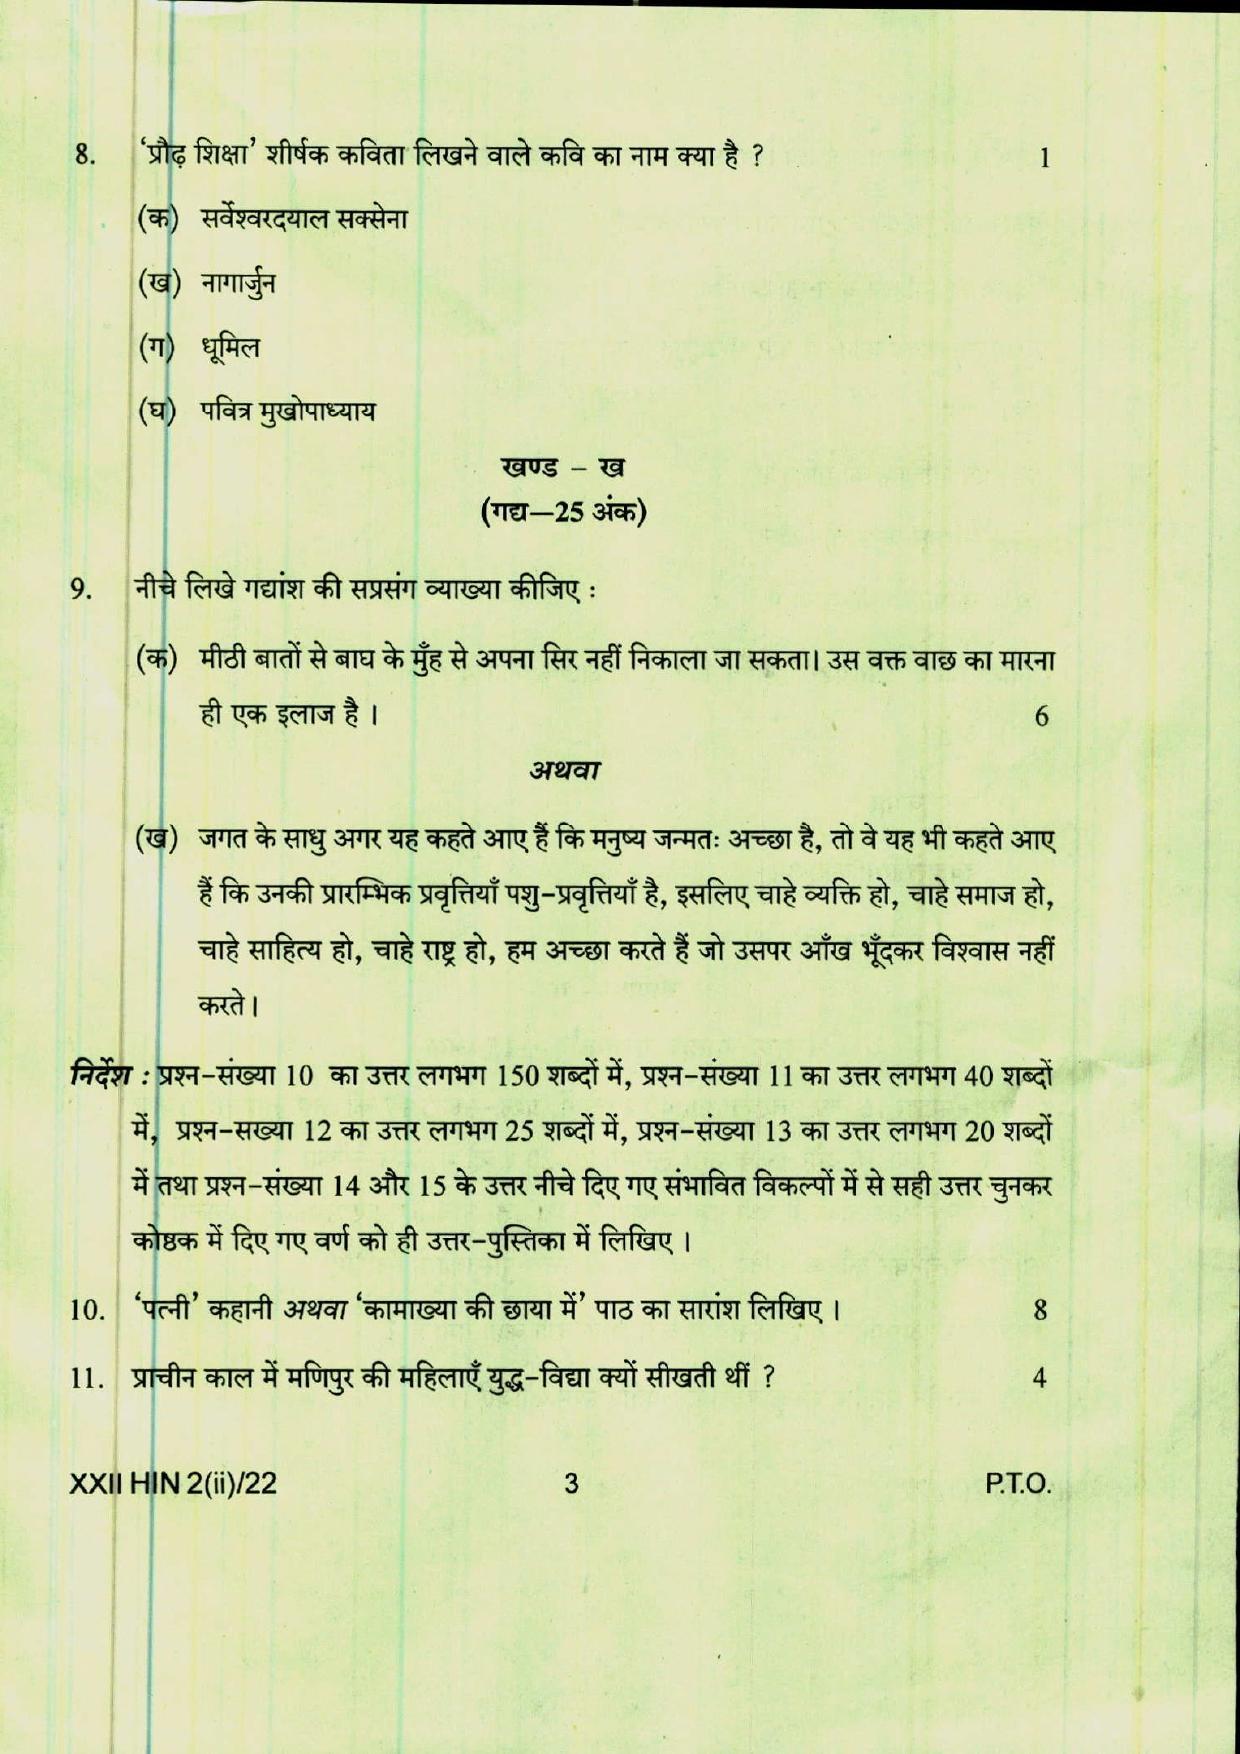 8. 'प्रौढ़ शिक्षा' शीर्षक कविता लिखने वाले कवि का नाम क्या है ? 1
(क) सर्वेश्वरदयाल सक्सेना
(ख) नागार्जुन
(ग) धूमिल
(घ) पवित्र मुखोपाध्याय
खण्ड – ख
(गद्य—25 अंक)
9. नीचे लिखे गद्यांश की सप्रसंग व्याख्या कीजिए :
(क) मीठी बातों से बाघ के मुँह से अपना सिर नहीं निकाला जा सकता। उस वक्त वाछ का मारना
ही एक इलाज है । 6
अथवा
(ख) जगत के साधु अगर यह कहते आए हैं कि मनुष्य जन्मतः अच्छा है, तो वे यह भी कहते आए
हैं कि उनकी प्रारम्भिक प्रवृत्तियाँ पशु-प्रवृत्तियाँ है, इसलिए चाहे व्यक्ति हो, चाहे समाज हो,
चाहे साहित्य हो, चाहे राष्ट्र हो, हम अच्छा करते हैं जो उसपर आँख भूँदकर विश्वास नहीं
करते।
निर्देश : प्रश्न-संख्या 10 का उत्तर लगभग 150 शब्दों में, प्रश्न-संख्या 11 का उत्तर लगभग 40 शब्दों
में, प्रश्न-सख्या 12 का उत्तर लगभग 25 शब्दों में, प्रश्न-संख्या 13 का उत्तर लगभग 20 शब्दों
में तथा प्रश्न-संख्या 14 और 15 के उत्तर नीचे दिए गए संभावित विकल्पों में से सही उत्तर चुनकर
कोष्ठक में दिए गए वर्ण को ही उत्तर-पुस्तिका में लिखिए ।
10. 'पत्नी' कहानी अथवा 'कामाख्या की छाया में' पाठ का सारांश लिखिए । 8
11. प्राचीन काल में मणिपुर की महिलाएँ युद्ध-विद्या क्यों सीखती थीं ? 4
XXII HIN 2(ii)/22 3 P.T.O.